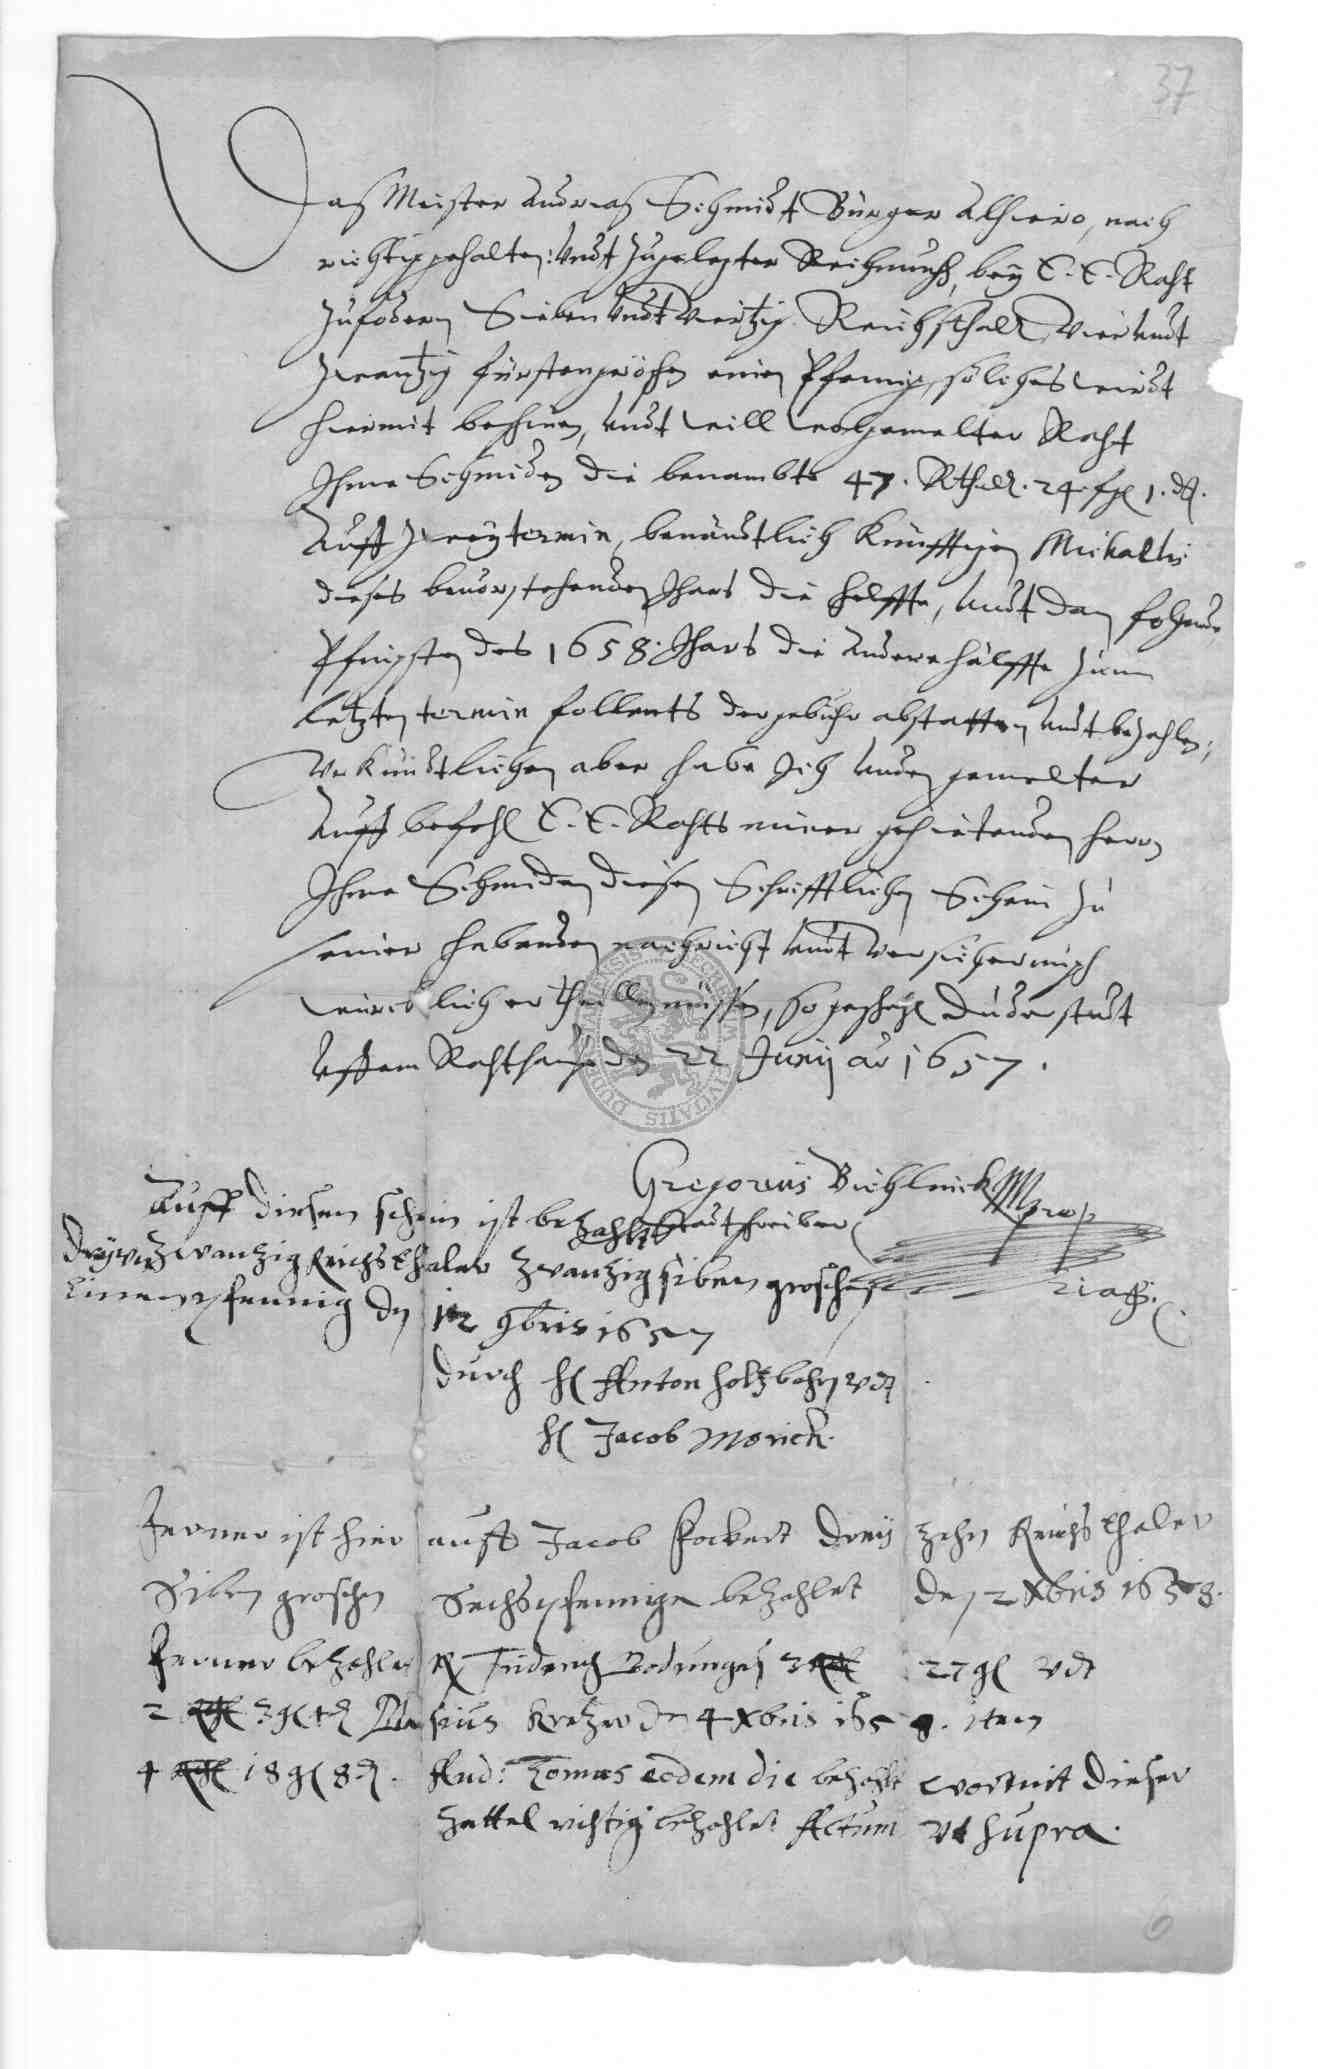 37
Das Meister Andreas Schmidt Bürger Alhiero, nach
richtig gehalten: Undt zugelegter Rechnungh, bey E. E. Raht
zufodern Sieben Undt viertzig Reichsthall. Vier Undt
zwantzig fürstengröschen einen Pfennig, solches wirdt
hiermit bescheinen, Undt will wolgemelter Raht
Ihme Schmiden die benambte 47. Rthall. 24. fgl 1. d.
Auff zwey termin, benäntlich künfftigen Michaelis
dieses bevorstehenden Jhars die helffte, Undt dan folgende
Pfingsten des 1658. Jhars die Andere hälffte zum
letzten termin follents der gebühr abstatten Undt bezahlen;
Urkündtlichen aber habe Ich Unden gemelter
Auff befehl E. E. Rahts meiner gebietenden hern
Ihme Schmiden diesen Schrifftlichen Schein zu
seiner habenden nachricht Undt Versicherungh
würcklich ertheillen müssen, So geschehen Duderstadt
Uffem Rahthause den 22 Junij ao 1657.
Gregorius Bichlnick
Stadtschreiber
Mprop
Auff diesen schein ist bezahlt
Drey und zwanzig Reichsthaler zwanzig siben groschen
Einen pfennig den 12 9bris 1657
durch H Anton Holtzborn vdt
H Jacob Morick.
Ferner ist hier auff Jacob Fockert Dreij zehn Reichsthaler
Siben groschen Sechs pfennige bezahlet den 2 Xbris 1658.
Ferner bezahlet Bodungen 27 gl vdt
2 3 gl Blasius Kretzer den 4 Xbris 1658. item
4 18 gl 8 d. And: Tomas eodem die bezahlt wormit dieser
Zettel richtig bezahlet Actum Vt supra.